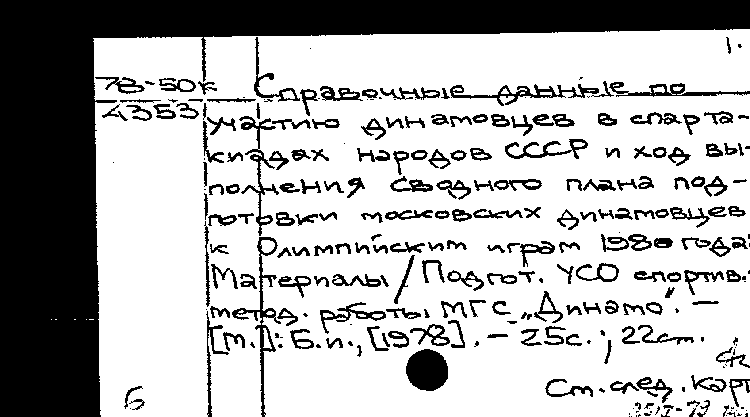 1.
78-50к Справочные данные по
4353 участию динамовцев в спарта-
киадах народов СССР и ход вы-
полнения сводного плана под-
готовки московских динамовцев
к Олимпийским играм 1980 года:
Материалы / Подгот. УСО спортив.-
метод. работы МГС „Динамо". —
[М.]: Б.и., [1978]. — 25с.; 22см.
См. след. карт
Б
25/I-79